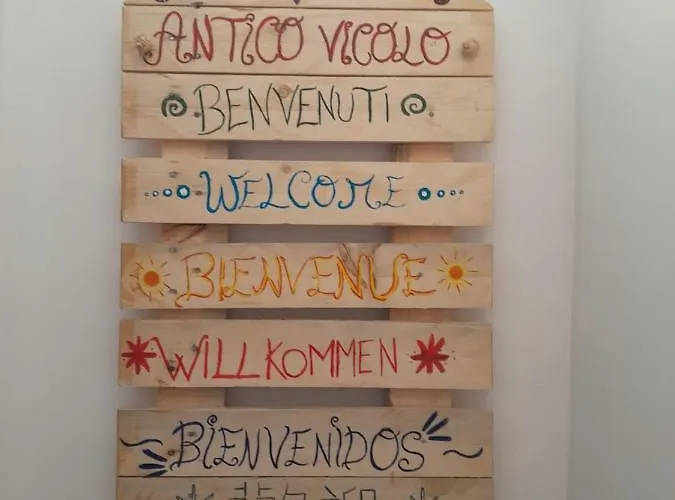 ANTICO VICOLO
BENVENUTI
WELCOME
BIENVENUE
WILLKOMMEN
BIENVENIDOS